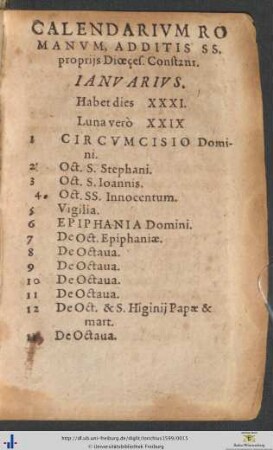 CALENDARIVM RO
MANVM, ADDITIS SS.
proprijs Diœces. Constant.
IANVARIVS.
Habet dies XXXI.
Luna verò XXIX
1 CIRCVMCISIO Domi-
ni.
2 Oct. S. Stephani.
3 Oct. S. Ioannis.
4 Oct. SS. Innocentum.
5 Vigilia.
6 EPIPHANIA Domini.
7 De Oct. Epiphaniæ.
8 De Octaua.
9 De Octaua.
10 De Octaua.
11 De Octaua.
12 De Oct. & S. Higinij Papæ &
mart.
13 De Octaua.
© Universitätsbibliothek Freiburg